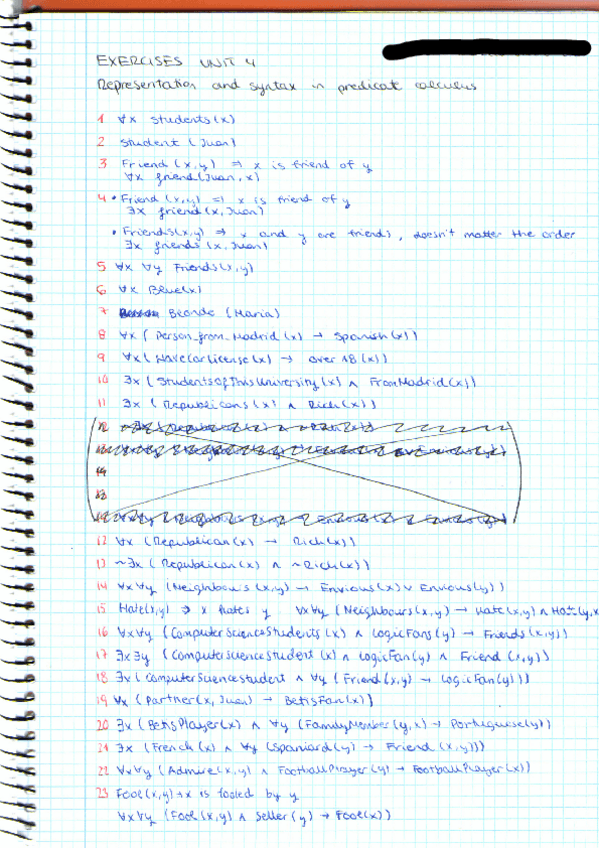 EXERCISES UNIT 4
Representation and syntax in predicat calculus
1 ∀x Students(x)
2 Student (Juan)
3 Friend (x,y) ⇒ x is friend of y
∀x friend(Juan, x)
4 • Friend (x,y) ⇒ x is friend of y
∃x friend(x, Juan)
• Friends(x,y) ⇒ x and y are friends, doesn't matter the order
∃x friends (x, Juan)
5 ∀x ∀y Friends(x,y)
6 ∀x Blue(x)
7 Blonde (Maria)
8 ∀x ( Person_from_Madrid (x) → Spanish(x))
9 ∀x (HaveCarLicense(x) → over 18(x))
10 ∃x (StudentsOfThisUniversity(x) ∧ FromMadrid(x))
11 ∃x (Republicans(x) ∧ Rich(x))
12
14
12 ∀x (Republican(x) → Rich(x))
13 ~∃x (Republican(x) ∧ ~Rich(x))
14 ∀x∀y (Neighbours(x,y) → Envious(x) ∨ Envious(y))
15 Hate(x,y) ⇒ x hates y ∀x∀y (Neighbours(x,y) → Hate(x,y) ∧ Hate(y,x
16 ∀x∀y (ComputerScienceStudents (x) ∧ LogicFans(y) → Friends(x,y))
17 ∃x∃y (ComputerScienceStudent (x) ∧ LogicFan(y) ∧ Friend (x,y))
18 ∃x (ComputerScienceStudent ∧ ∀y (Friend(x,y) → LogicFan(y)))
19 ∀x (Partner(x, Juan) → BetisFan(x))
20 ∃x (BetisPlayer(x) ∧ ∀y (FamilyMember(y,x) → Portuguese(y))
21 ∃x (French(x) ∧ ∀y (Spaniard(y) → Friend (x,y)))
22 ∀x∀y (Admire(x,y) ∧ FootballPlayer(y) → FootballPlayer(x))
23 Fool(x,y) → x is fooled by y
∀x∀y (Fool(x,y) ∧ Seller(y) → Fool(x))